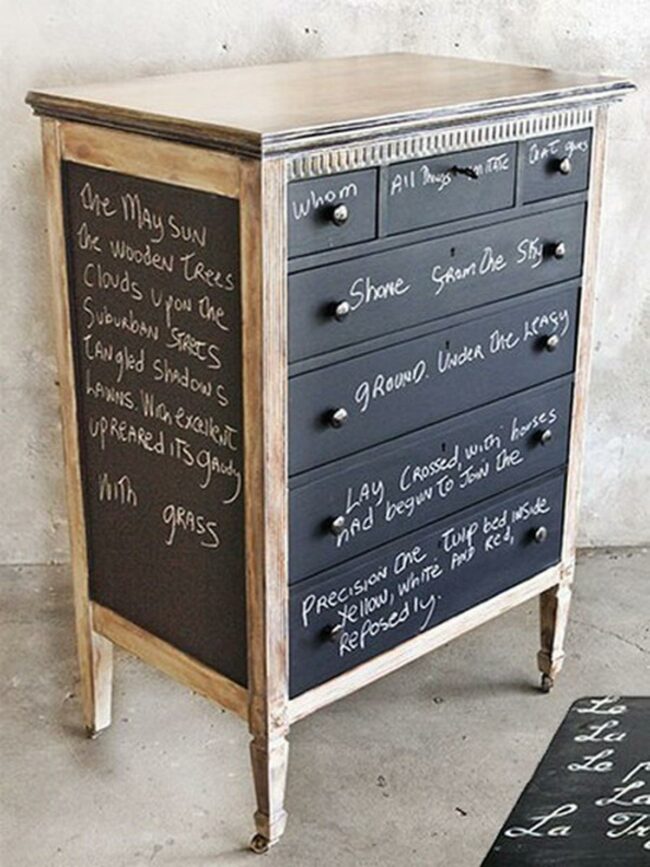 The MAY SUN
the wooden Trees
Clouds Upon the
Suburban STREETS
tangled shadows
LAWNS. With excellent
UPREARED ITS Gaudy
With grass
Whom
All Things imitate
Shone from the Sky
GROUND. Under the Leafy
LAY Crossed, with houses
HAD begun To Join the
PRECISION the Tulip bed inside
Yellow, White AND Red,
Reposedly.
La
La
La
La Tr